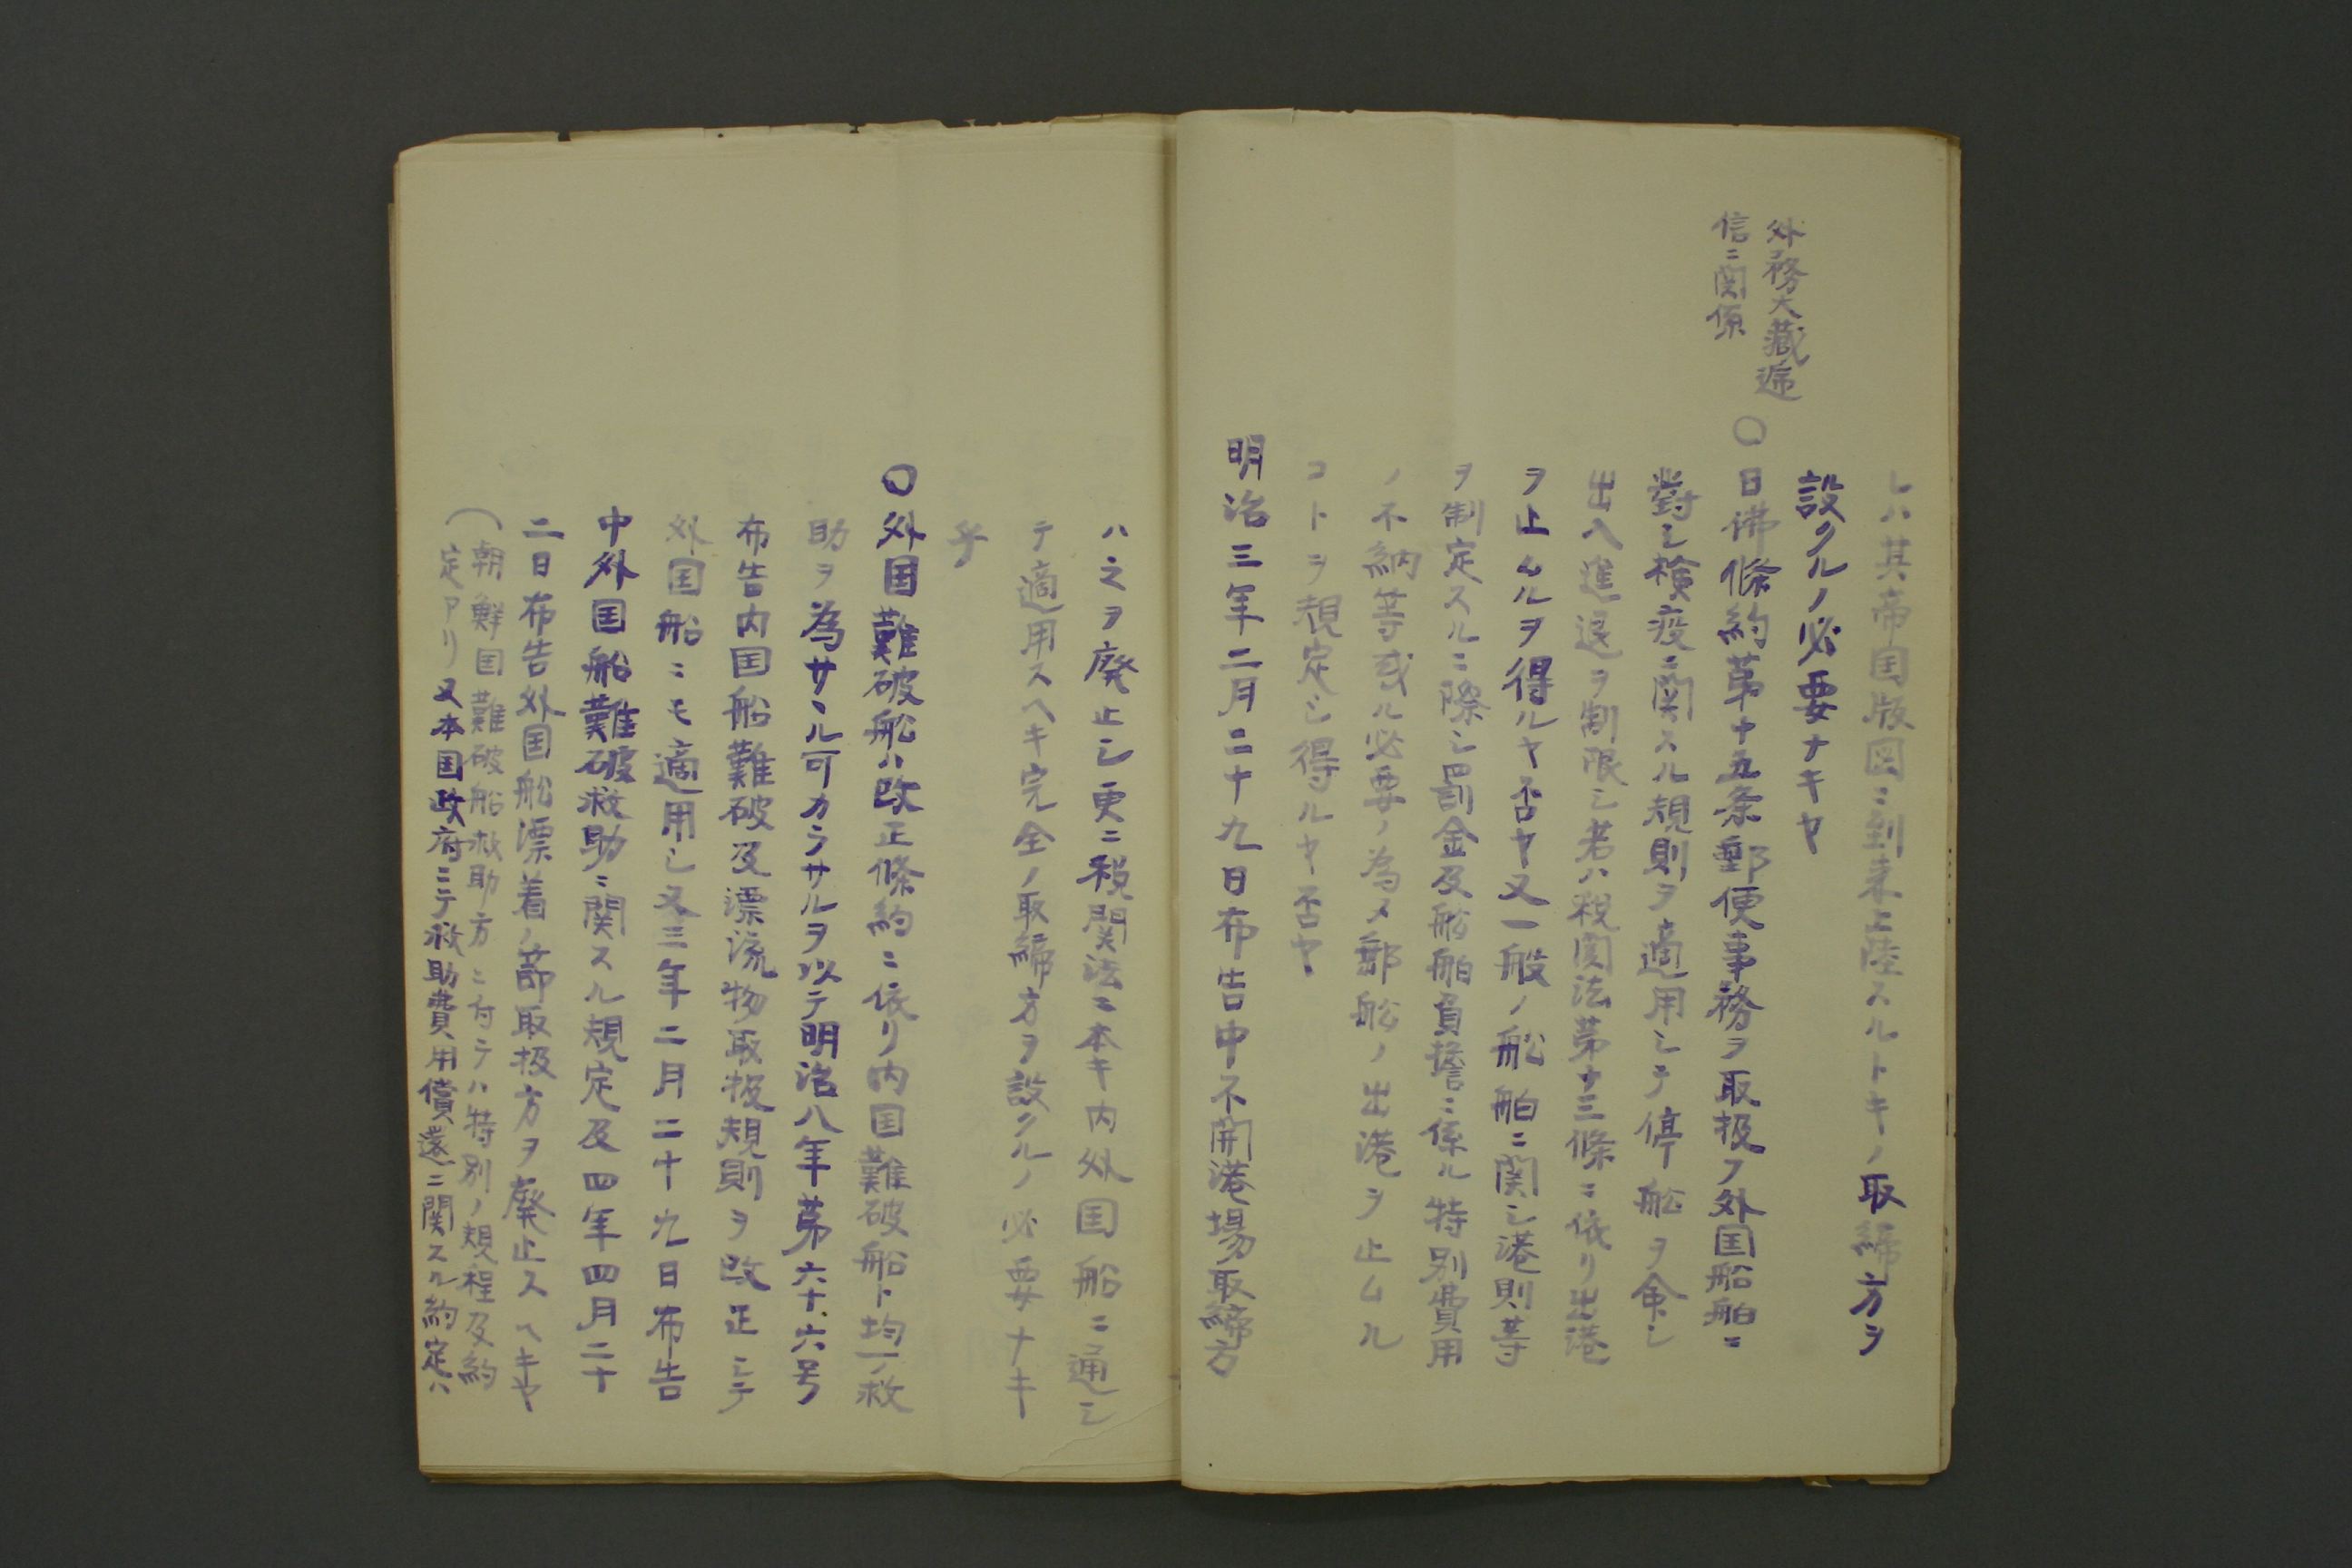 外務大藏遞
信ニ関係
レハ其帝国版図ニ到来上陸スルトキノ取締方ヲ
設クルノ必要ナキヤ
〇日佛條約第十五条郵便事務ヲ取扱フ外国船舶ニ
對シ検疫ニ関スル規則ヲ適用シテ停船ヲ命シ
出入進退ヲ制限シ若ハ税関法第十三條ニ依リ出港
ヲ止ムルヲ得ルヤ否ヤ又一般ノ船舶ニ関シ港則等
ヲ制定スルニ際シ罰金及船舶負擔ニ係ル特別費用
ノ不納等或ル必要ノ為メ郵船ノ出港ヲ止ムル
コトヲ規定シ得ルヤ否ヤ
明治三年二月二十九日布告中不開港場取締方
ハ之ヲ廃止シ更ニ税関法ニ本キ内外国船ニ通シ
テ適用スヘキ完全ノ取締方ヲ設クルノ必要ナキ
乎
〇外国難破船ハ改正條約ニ依リ内国難破船ト均一ノ救
助ヲ為サヽル可カラサルヲ以テ明治八年第六十六号
布告内国船難破及漂流物取扱規則ヲ改正シテ
外国船ニモ適用シ又三年二月二十九日布告
中外国船難破救助ニ関スル規定及四年四月二十
二日布告外国船漂着ノ節取扱方ヲ廃止スヘキヤ
（朝鮮国難破船救助方ニ付テハ特別ノ規程及約
定アリ又本国政府ニテ救助費用償還ニ関スル約定ハ